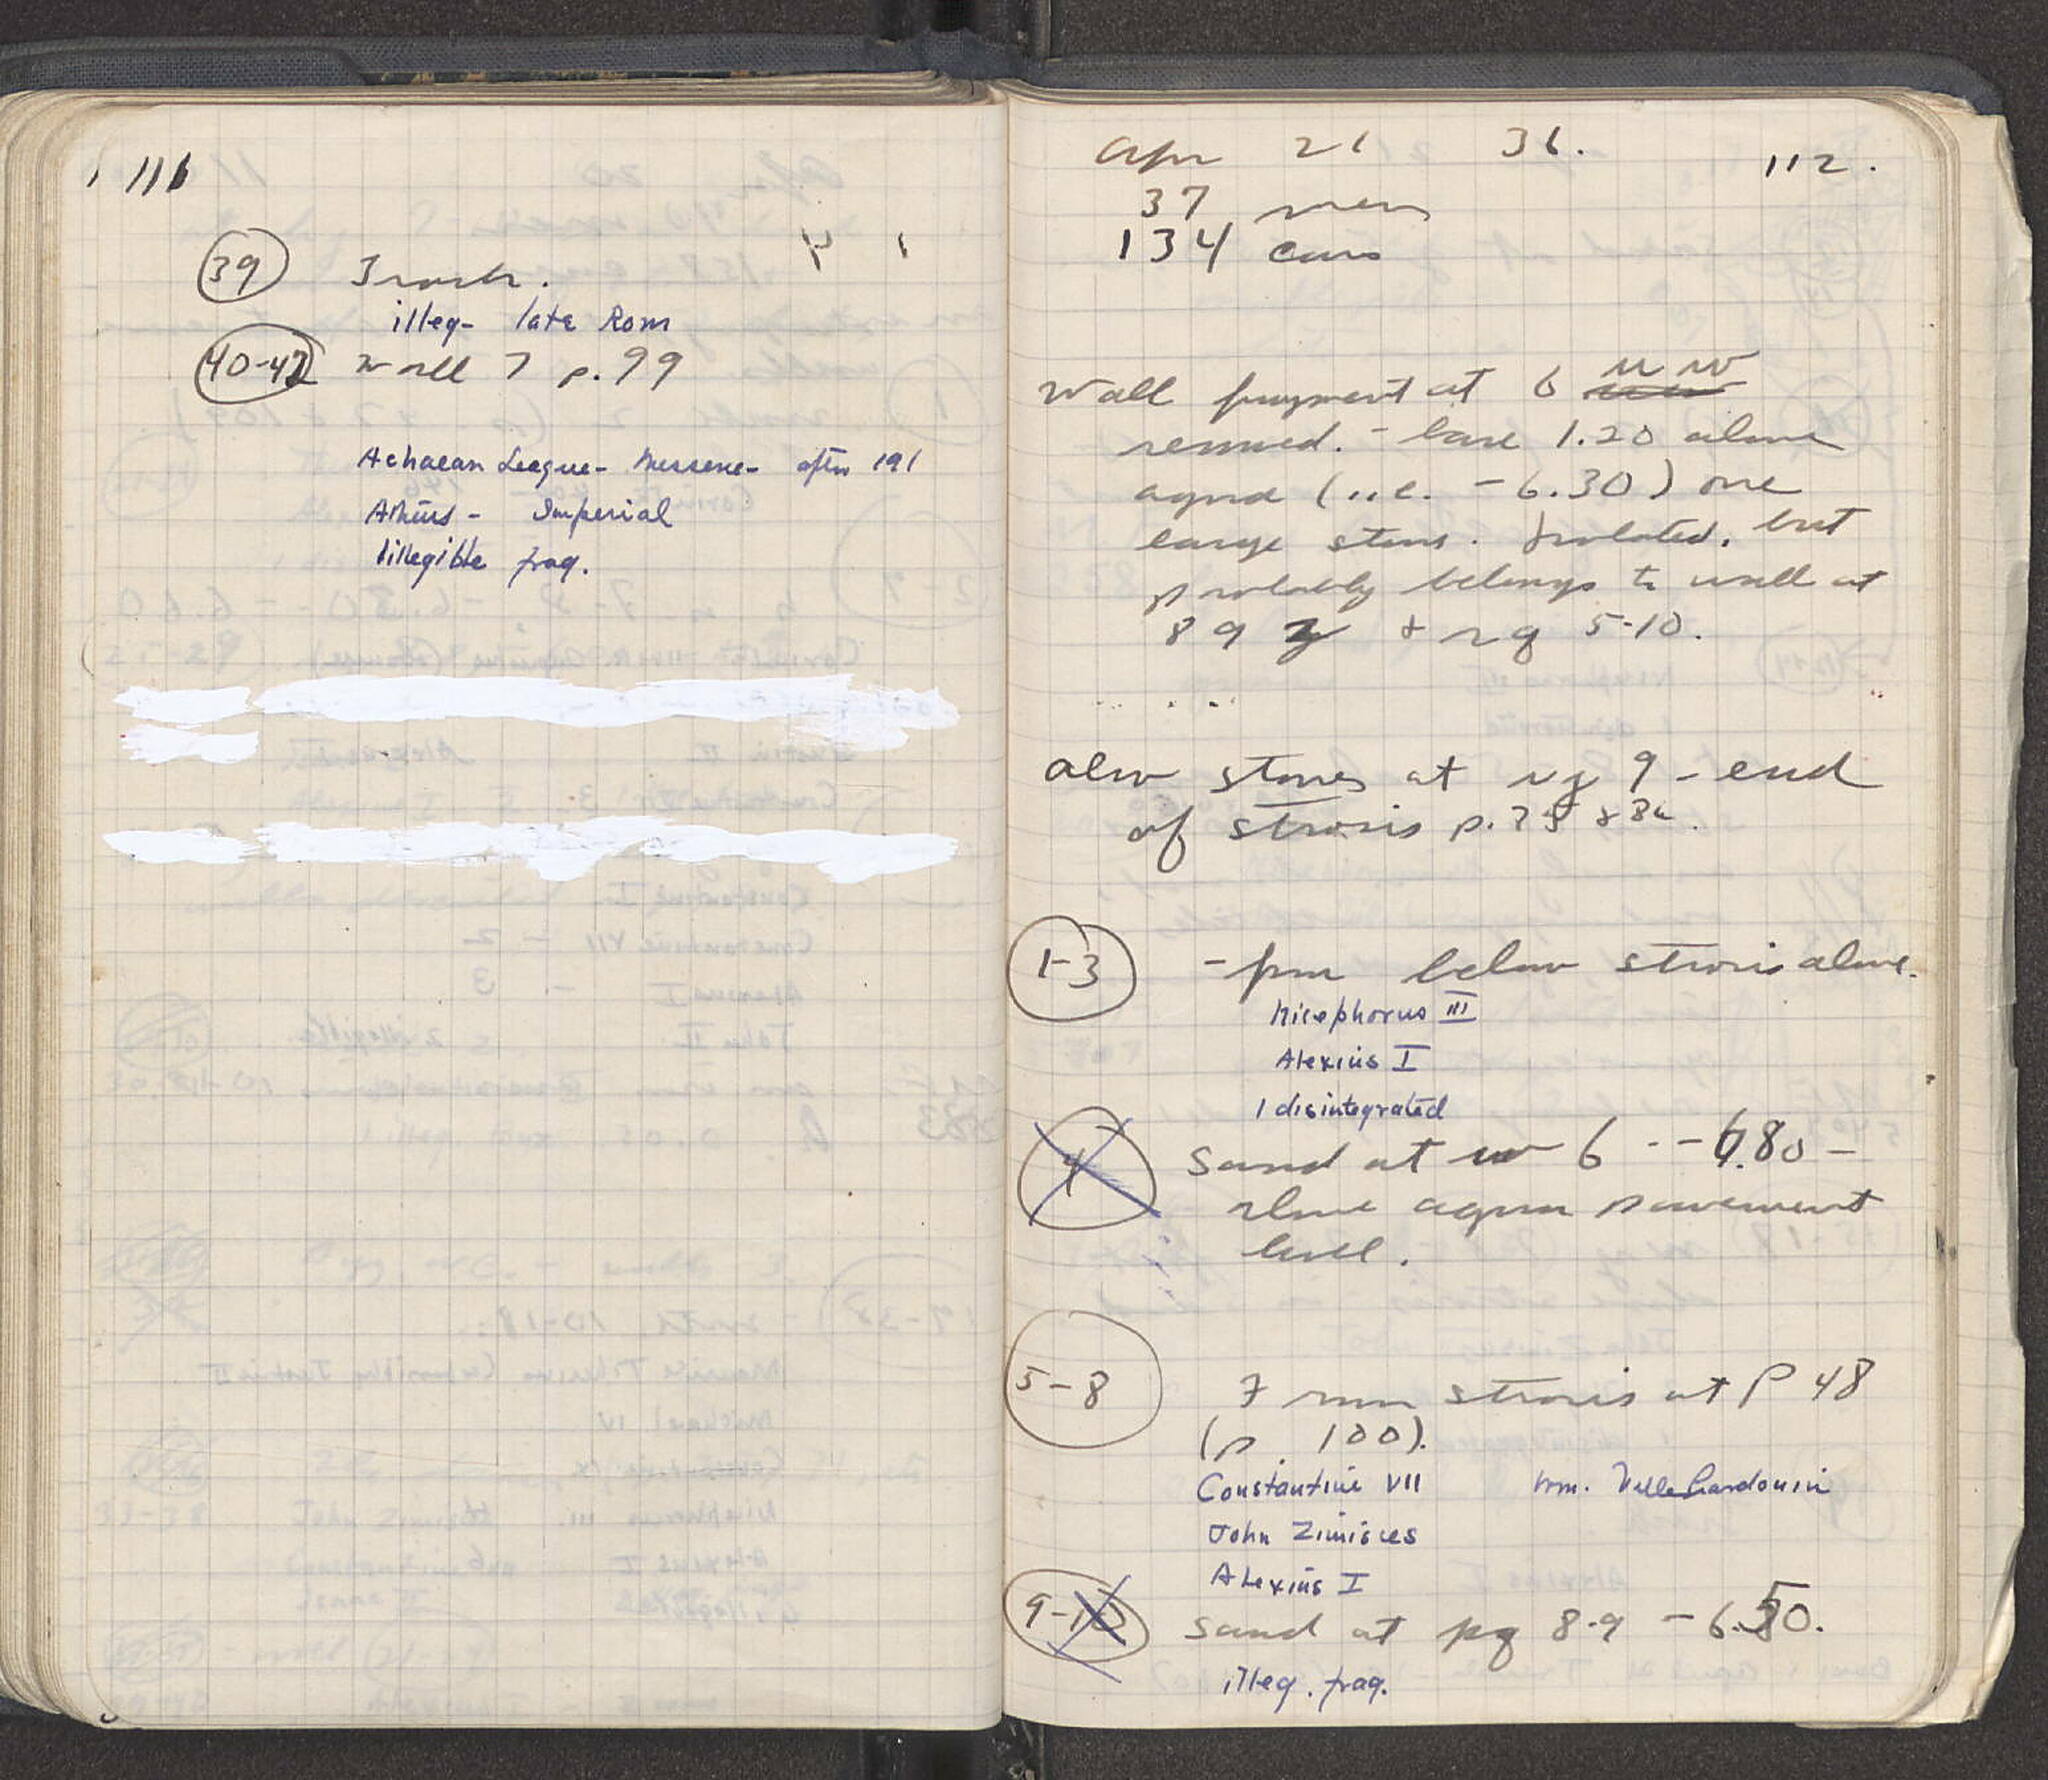 116
39 Trash.
illeg- late Rom
40-42 wall 7 p. 99
Achaean League- Messene- after 191
Athens - Imperial
1 illegible frag.
Apr 21 36. 112.
37 men
134 cars
Wall fragment at 6
removed. - base 1.20 above
agora (i.e. -6.30) one
large stone. Isolated, but
probably belongs to wall at
5-10.
also stones at 9 - end
of strosis p.
1-3 - from below strosis above.
Nicephorus III
Alexius I
1 disintegrated
4 Sand at 6 -6.80 -
above agora pavement
level.
5-8 7 from strosis at P 48
(p. 100).
Constantine VII Wm. Villehardouin
John Zimisces
Alexius I
9-10 sand at pq 8-9 - 6.50.
illeg. frag.